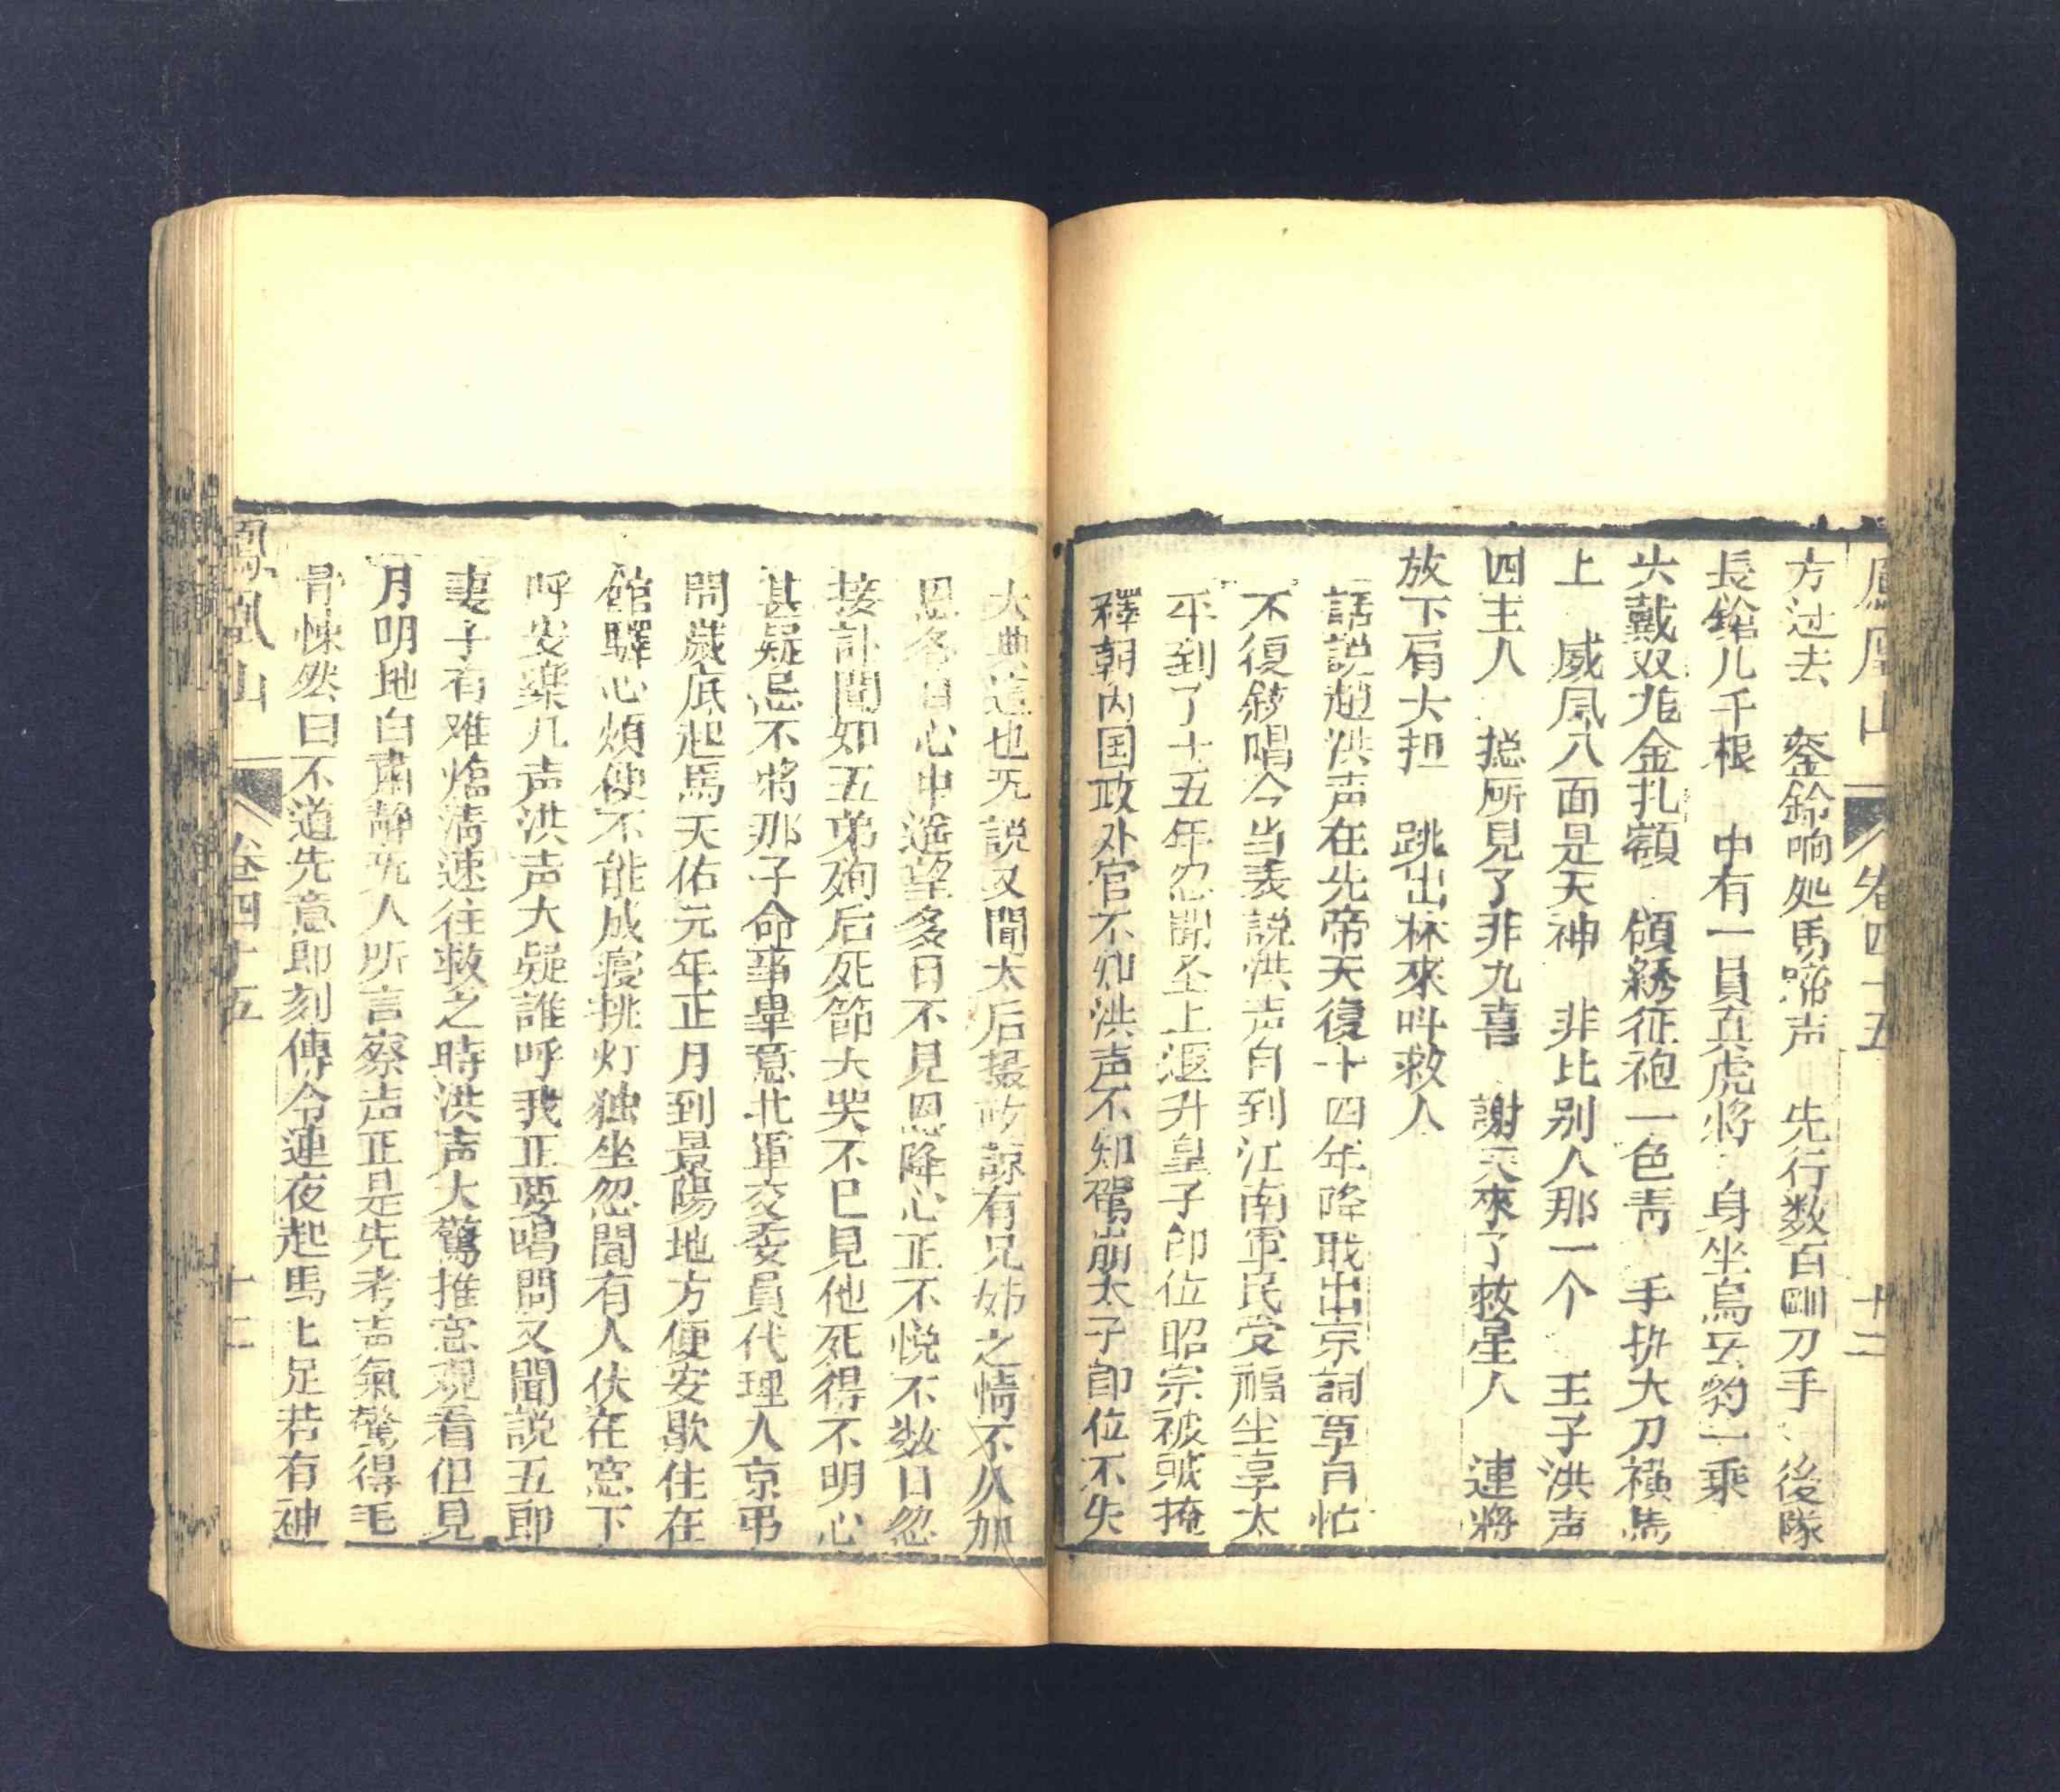 鳳凰山 卷四十五 十二
方过去 鑾鈴响処馬啼声 先行数百剛刀手 後隊
長鎗几千根 中有一員真虎將 身坐烏牙豹一乘
头戴双龍金扎額 領綉征袍一色青 手执大刀橫馬
上 威風八面是天神 非比别人那一个 王子洪声
四主人 摠所見了非九喜 謝天來了救星人 連將
放下肩大担 跳出林來叫救人
話説趙洪声在先帝天復十四年降戝出京詞草月忙
不復敘唱今当表説洪声自到江南軍民受福坐享太
平到了十五年忽聞圣上遐升皇子即位昭宗被弑掩
釋朝内国政外官不知洪声不知駕崩太子即位不失
大典這也旡説又聞太后摄政諒有兄姊之情不久加
恩各自心中遙望多日不見恩降心正不悦不数日忽
接訃聞如五弟殉后死節大哭不已見他死得不明心
甚疑忌不將那子命事畢意北軍交委員代理人京弔
問歲底起馬天佑元年正月到景陽地方便安歇住在
館驛心煩使不能成寝挑灯独坐忽聞有人伏在窓下
呼安樂几声洪声大疑誰呼我正要喝問又聞説五郎
妻子有难临清速往救之時洪声大驚推窓观看但見
月明地白肅静旡人所言察声正是先考声氣驚得毛
骨悚然曰不道先意即刻傳令連夜起馬上足若有神
鳳凰山 卷四十五 十二